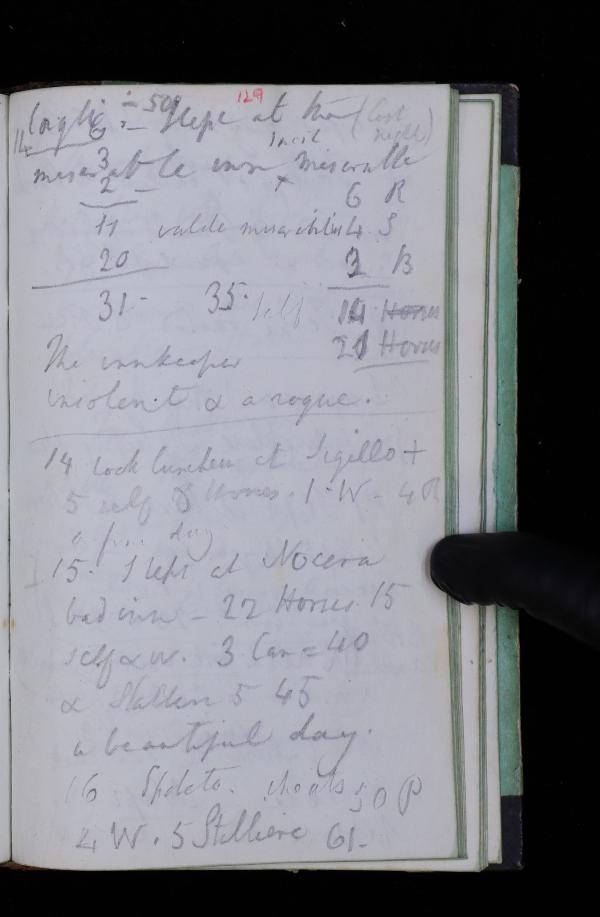 129
14 = 50 Slept at the (last
night)
6
3 miserable inn miserable
2 - 6 R
11 valde 4 S
20 3 B
31- 35. self 14 Horses
The innkeeper 21 Horses
insolent & a rogue.
14 took luncheon at Sigillo +
5 self 8 Horses. 1 - W - 4 R
a fine day
15. Slept at Nocera
bad inn - 22 Horses 15
self & W. 3 Can = 40
& Stallieri 5 45
a beautiful day.
16 Spoleto. 50 P
4 W. 5 Stalliere 61-